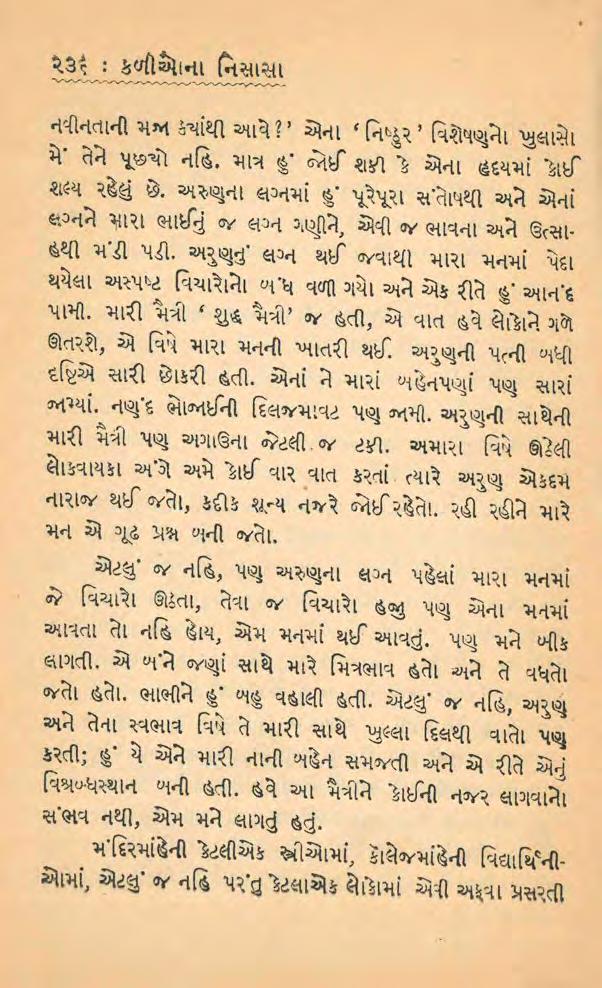 ૨૩૬ : કળીઓના નિસાસા
નવીનતાની મજા ક્યાંથી આવે?’ એના ‘નિષ્ઠુર’ વિશેષણનો ખુલાસો
મેં તેને પૂછ્યો નહિ. માત્ર હું જોઈ શકી કે એના હૃદયમાં કોઈ
શલ્ય રહેલું છે. અરુણના લગ્નમાં હું પૂરેપૂરા સંતોષથી અને એનાં
લગ્નને મારા ભાઈનું જ લગ્ન ગણીને, એવી જ ભાવના અને ઉત્સા-
હથી મંડી પડી. અરુણનું લગ્ન થઈ જવાથી મારા મનમાં પેદા
થયેલા અસ્પષ્ટ વિચારોનો બંધ વળી ગયો અને એક રીતે હું આનંદ
પામી. મારી મૈત્રી ‘શુદ્ધ મૈત્રી’ જ હતી, એ વાત હવે લોકોને ગળે
ઊતરશે, એ વિષે મારા મનની ખાતરી થઈ. અરુણની પત્ની બધી
દૃષ્ટિએ સારી છોકરી હતી. એનાં ને મારાં બહેનપણાં પણ સારાં
જામ્યાં. નણંદ ભોજાઈની દિલજમાવટ પણ જામી. અરુણની સાથેની
મારી મૈત્રી પણ અગાઉના જેટલી જ ટકી. અમારા વિષે ઊઠેલી
લોકવાયકા અંગે અમે કોઈ વાર વાત કરતાં ત્યારે અરુણ એકદમ
નારાજ થઈ જતો, કદીક શૂન્ય નજરે જોઈ રહેતો. રહી રહીને મારે
મન એ ગૂઢ પ્રશ્ન બની જતો.
એટલું જ નહિ, પણ અરુણના લગ્ન પહેલાં મારા મનમાં
જે વિચારો ઊઠતા, તેવા જ વિચારો હજી પણ એના મનમાં
આવતા તો નહિ હોય, એમ મનમાં થઈ આવતું. પણ મને બીક
લાગતી. એ બંને જણાં સાથે મારે મિત્રભાવ હતો અને તે વધતો
જતો હતો. ભાભીને હું બહુ વહાલી હતી. એટલું જ નહિ, અરુણ
અને તેના સ્વભાવ વિષે તે મારી સાથે ખુલ્લા દિલથી વાતો પણ
કરતી; હું યે એને મારી નાની બહેન સમજતી અને એ રીતે એનું
વિશ્રબ્ધસ્થાન બની હતી. હવે આ મૈત્રીને કોઈની નજર લાગવાનો
સંભવ નથી, એમ મને લાગતું હતું.
મંદિરમાંહેની કેટલીએક સ્ત્રીઓમાં, કૉલેજમાંહેની વિદ્યાર્થિની-
ઓમાં, એટલું જ નહિ પરંતુ કેટલાએક લોકોમાં એવી અફવા પ્રસરતી